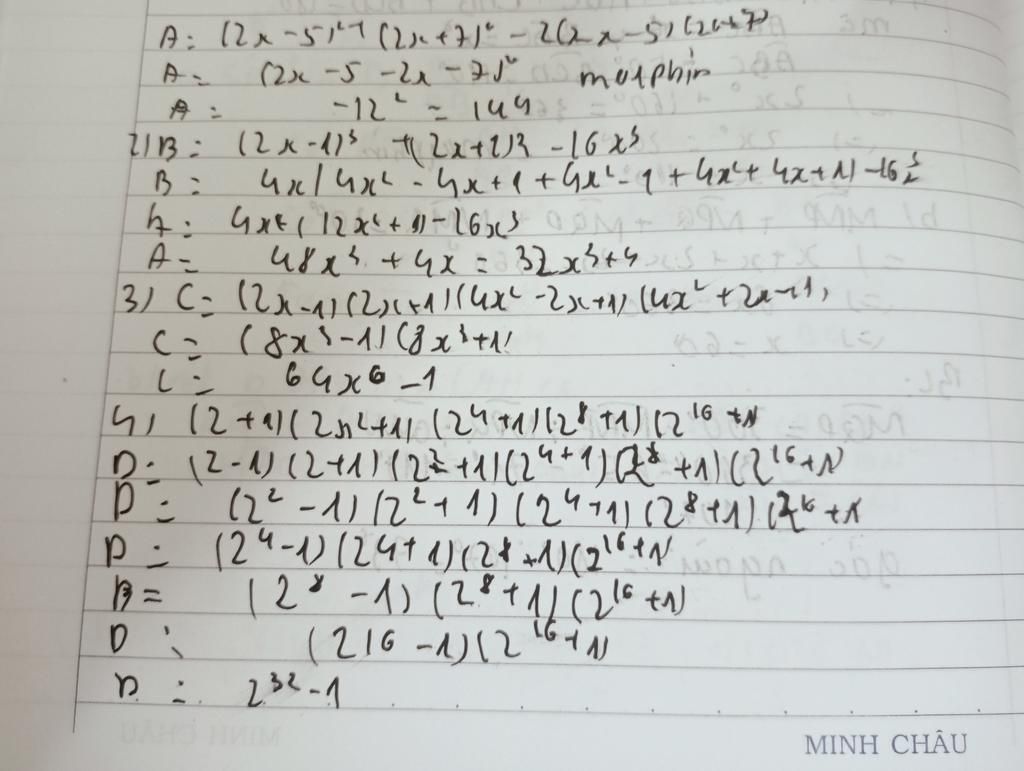 A= (2x-5)²+ (2x+7)² - 2(2x-5)(2x+7)
A= (2x-5-2x-7)²
A= -12² = 144
2) B= (2x-1)³ +(2x+1)3 - 16x³
B= 4x(4x² - 4x+1 + 4x²-1 + 4x²+4x+1)-16
4x(12x²+1)-16x³
A= 48x³ + 4x = 32x³+4
3) C= (2x-1)(2x+1)(4x²-2x+1)(4x²+2x+1)
C= (8x³-1)(8x³+1)
C= 64x⁶-1
4) (2+1)(2²+1)(2⁴+1)(2⁸+1)(2¹⁶+1)
D= (2-1)(2+1)(2²+1)(2⁴⁺¹)(2⁸+1)(2¹⁶+1)
D= (2²-1)(2²+1)(2⁴+1)(2⁸+1)(2¹⁶+1
D= (2⁴-1)(24+1)(2⁸+1)(2¹⁶+1)
B= (2⁸-1)(2⁸+1)(2¹⁶+1)
D: (216-1)(2¹⁶+1)
D= 2³²-1
MINH CHÂU